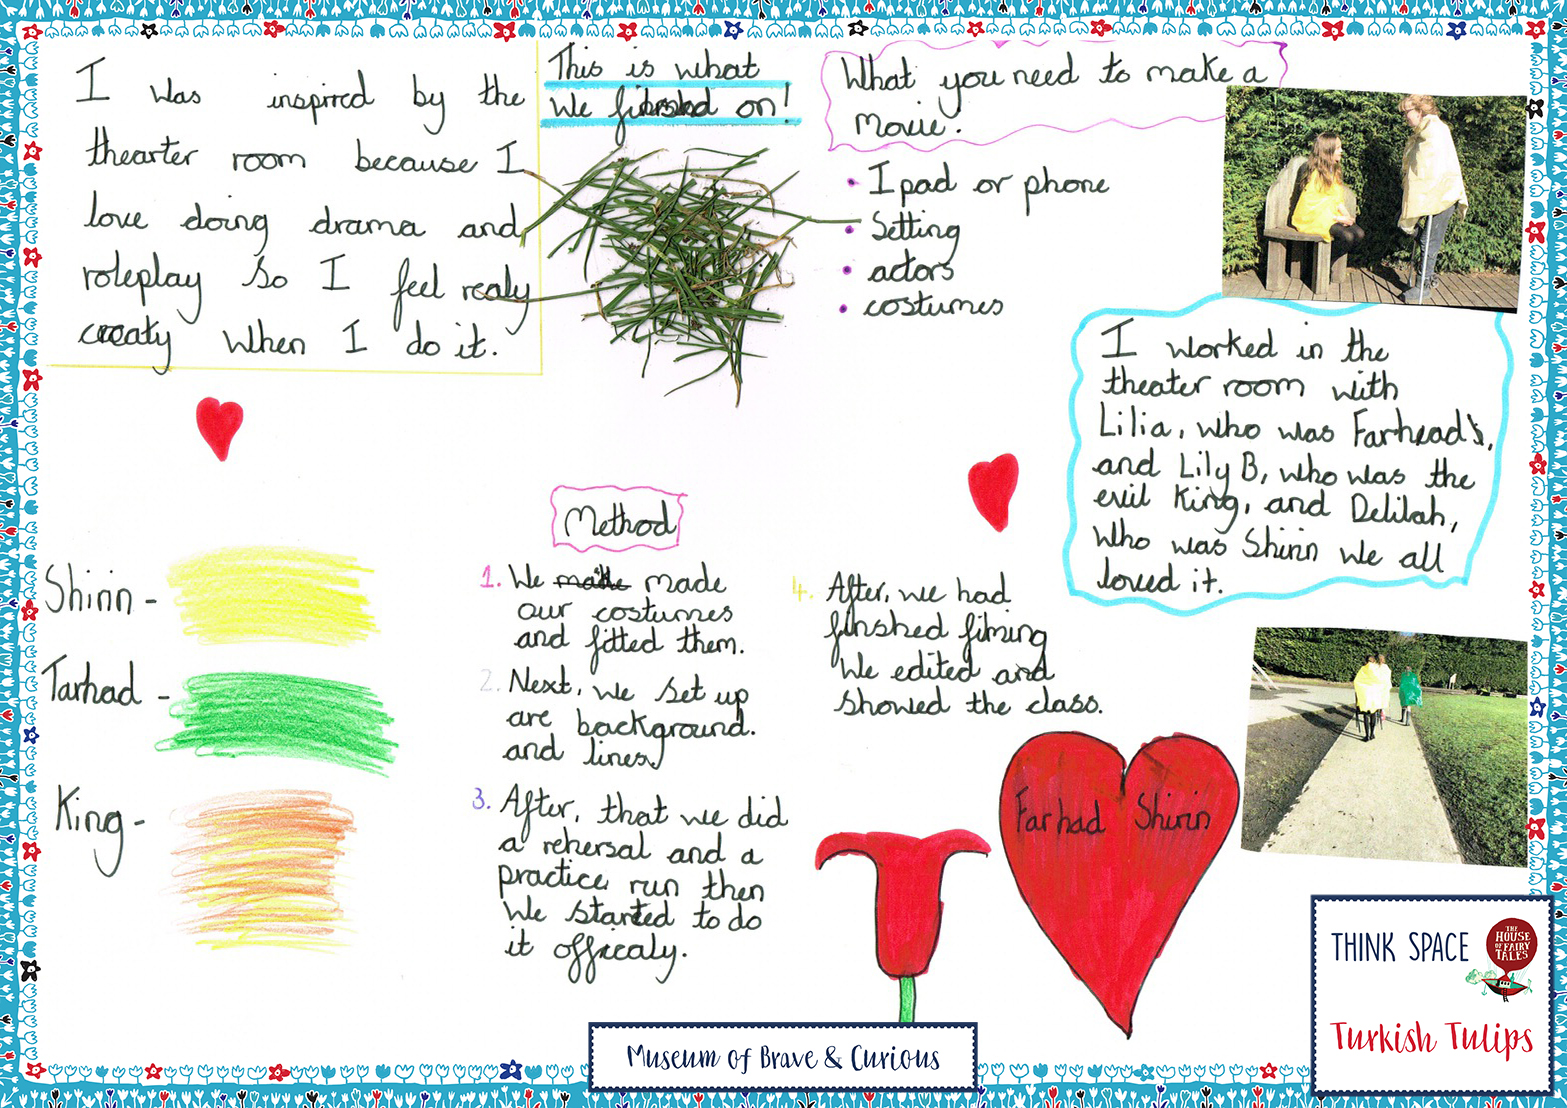 I was inspired by the
thearter room because I
love doing drama and
roleplay so I feel realy
creaty when I do it.
This is what
we finshed on!
What you need to make a
movie.
• Ipad or phone
• Setting
• actors
• costumes
I worked in the
theater room with
Lilia, who was Farhead's,
and Lily B, who was the
evil King, and Delilah,
who was Shirin we all
loved it.
Shirin -
Tarhad -
King -
Method
1. We make made
our costumes
and fitted them.
2. Next, we set up
are background.
and lines
3. After, that we did
a rehersal and a
practice run then
we started to do
it officaly.
4. After, we had
finshed filming
we edited and
showed the class.
Farhad Shirin
THINK SPACE
THE
HOUSE
OF FAIRY
TALES
Turkish Tulips
Museum of Brave & Curious